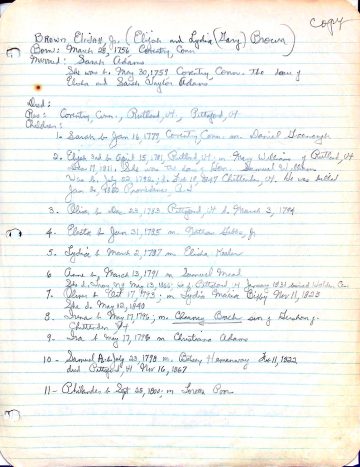 Copy
Brown, Elijah, Jr. (Elijah and Lydia (Gary) Brown)
Born: March 28, 1756 Coventry, Conn
Married: Sarah Adams
She was b. May 30, 1759 Coventry Conn. The dau of
and Sarah Taylor Adams
Died:
Res: Coventry, Conn., Rutland, Vt., Pittsford, Vt.
Children:
1. Sarah b Jan 16, 1779, Coventry Conn. m. Daniel
2. Elijah 3rd b April 15, 1781, Rutland, Vt; m Mary Williams of Rutland, Vt
1811; She was the dau of Samuel Williams
Was b. July 22, 1786; d. Feb 19, 1847 Chittenden, Vt. He was killed
Jan 1830 Providence, R.I
3. b Dec 23, 1783 Pittsford, Vt d. March 3, 1784
4. b Jan 31, 1785 m Nathan Gibbs, Jr
5. Lydia b March 2, 1787 m Elisha
6. Anna b, March 13, 1791 m Samuel Mead
7. Oliver b Oct 17, 1793; m Lydia Maria Bixby Nov 11, 1823
She d. May 12, 1840
8. Irena b May 17, 1796; m. Clearey Bach son of
Chittenden Vt
9. Ira b May 17, 1796 m Christiana Adams
10 - Samuel A b July 23, 1798 m. Betsey Hemanway Feb 11, 1822
died Pittsford, Vt Nov 16, 1867
11 - Philander b Sept 25, 1800; m